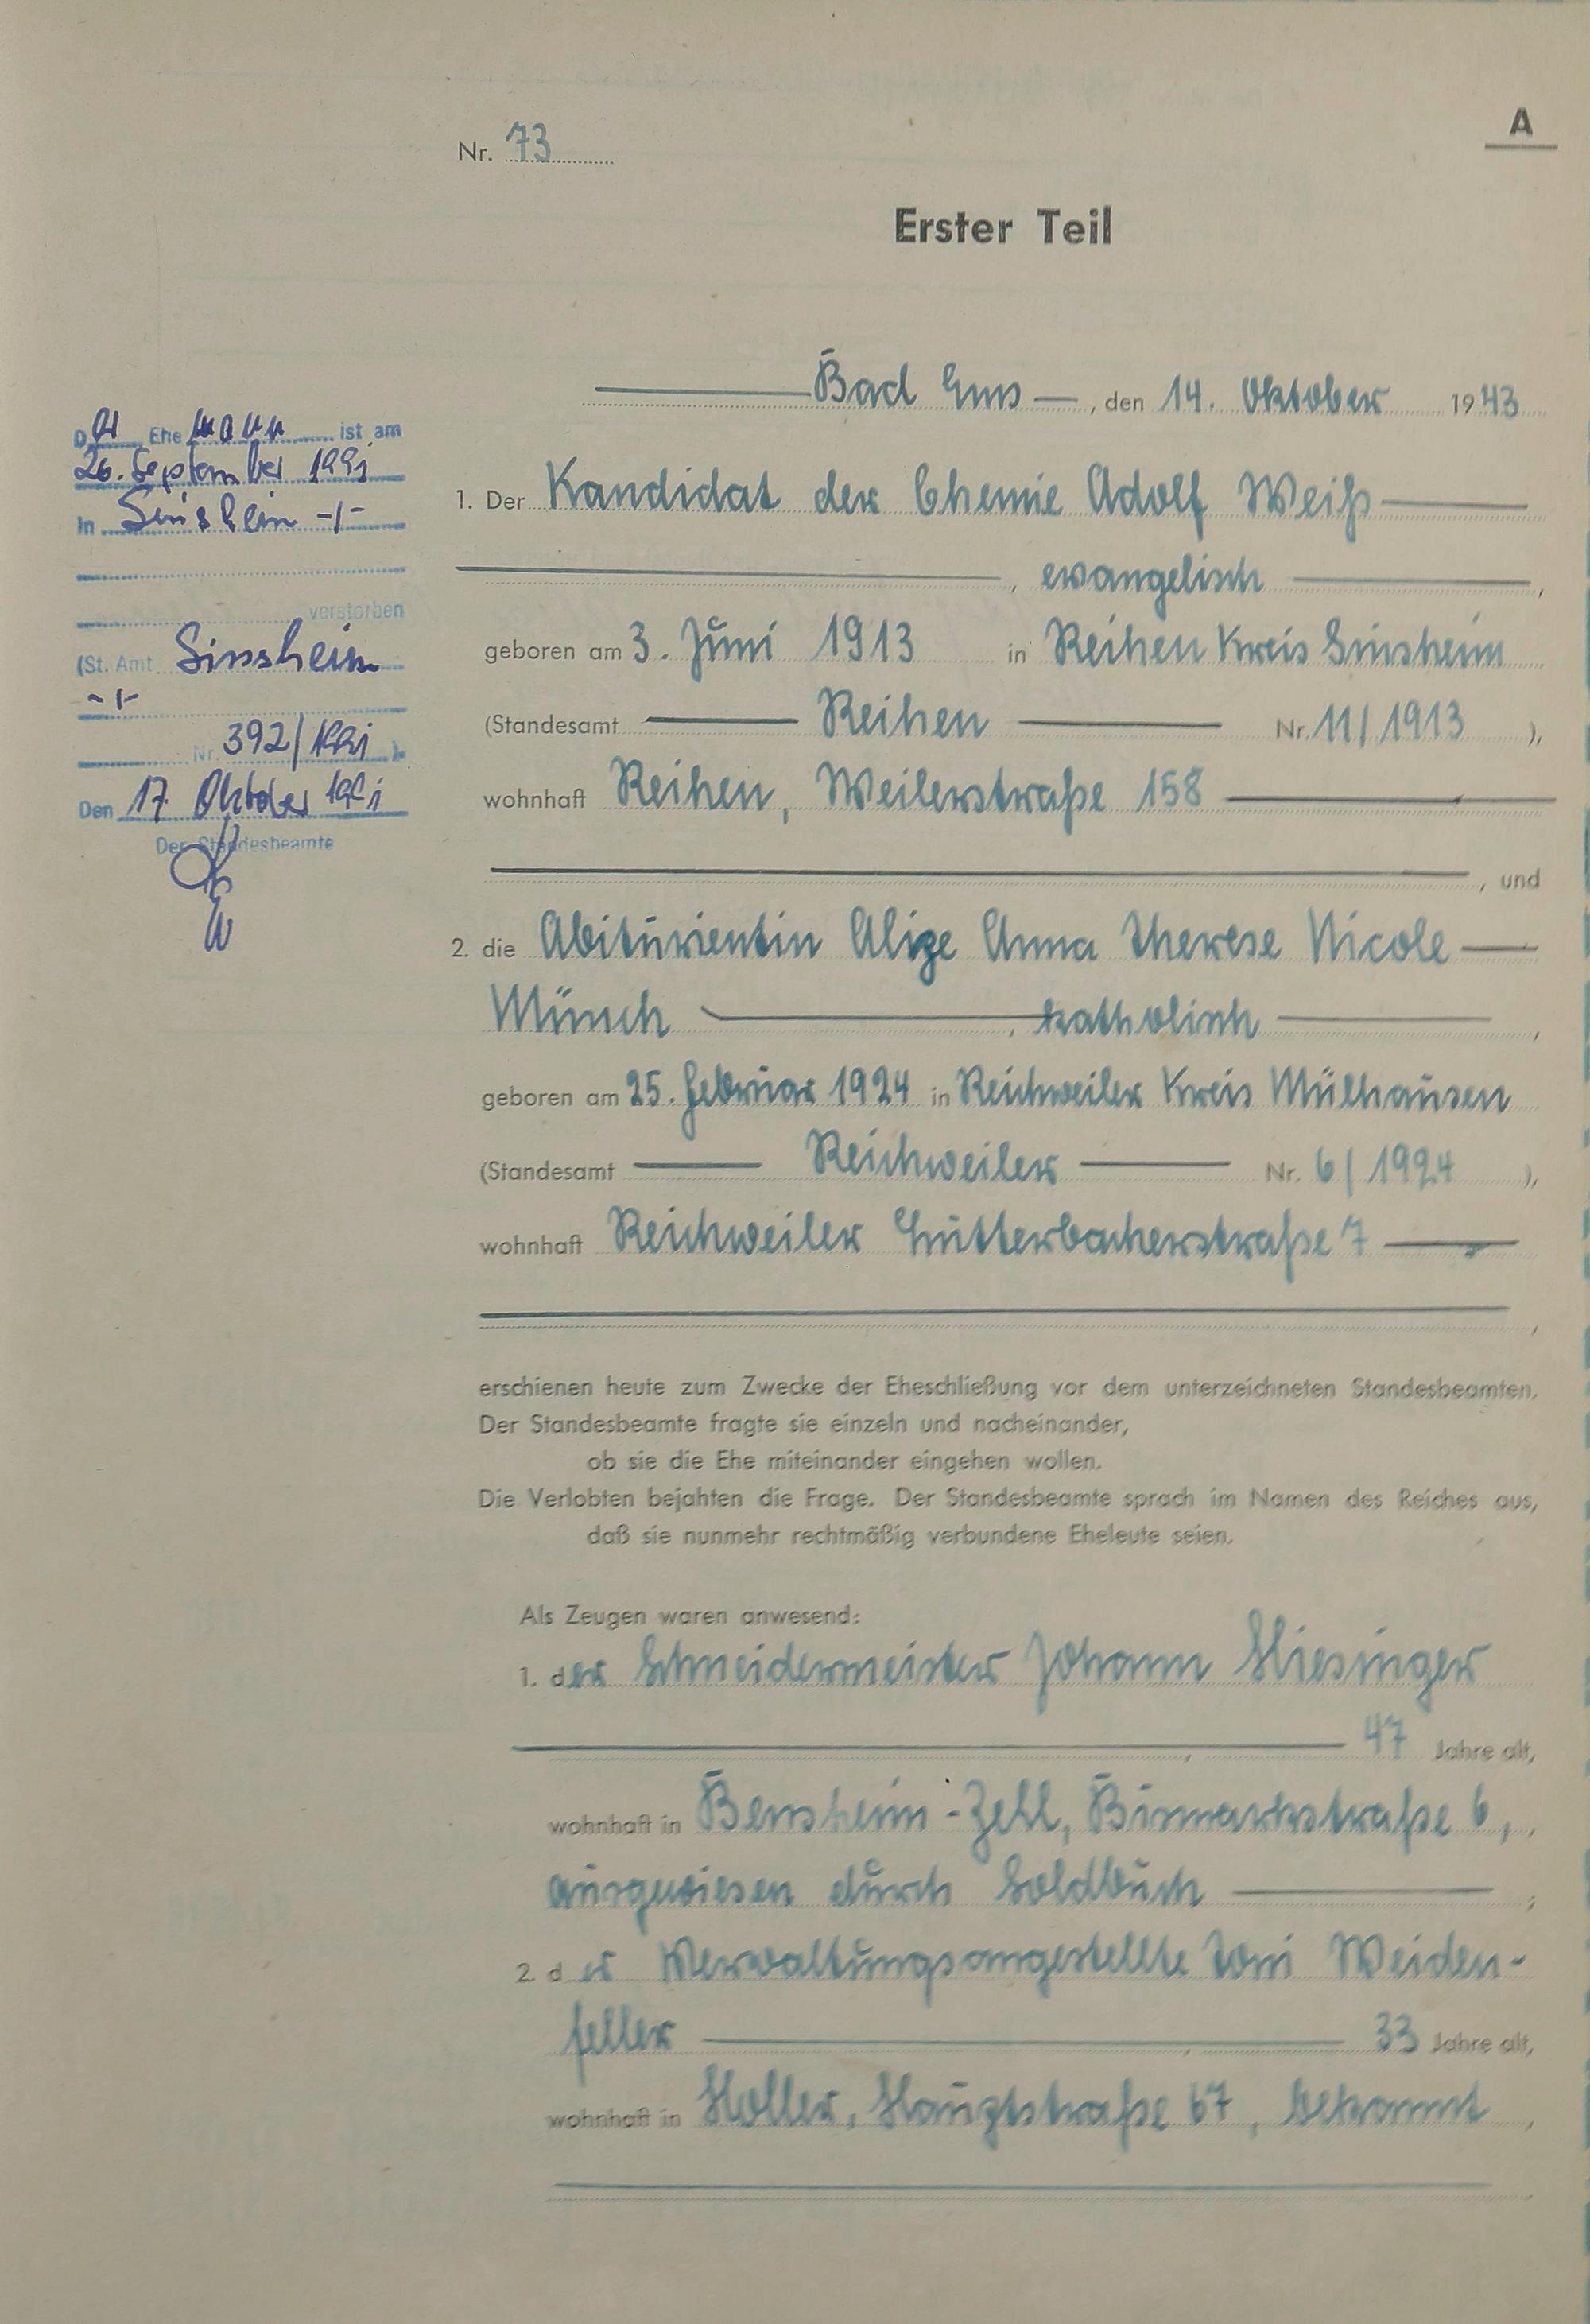 A
Nr. 73
Erster Teil
Bad Ems, den 14. Oktober 1943
1. Der Kandidat der Chemie Adolf Weiß
, evangelisch ,
geboren am 3. Juni 1913 in Reihen Kreis Sinsheim
(Standesamt Reihen Nr. 11/1913 ),
wohnhaft Reihen, Weilerstraße 158
, und
2. die Abiturientin Alize Anna Therese Nicole
Münch , katholisch ,
geboren am 25. Februar 1924 in Reichweiler Kreis Mülhausen
(Standesamt Reichweiler Nr. 6/1924 ),
wohnhaft Reichweiler Lutterbacherstraße 7
,
erschienen heute zum Zwecke der Eheschließung vor dem unterzeichneten Standesbeamten.
Der Standesbeamte fragte sie einzeln und nacheinander,
ob sie die Ehe miteinander eingehen wollen.
Die Verlobten bejahten die Frage. Der Standesbeamte sprach im Namen des Reiches aus,
daß sie nunmehr rechtmäßig verbundene Eheleute seien.
Als Zeugen waren anwesend:
1. der Schneidermeister Johann Hiesinger
, 47 Jahre alt,
wohnhaft in Bensheim-Zell, Bismarkstraße 6,
ausgewiesen durch Soldbuch ;
2. der Verwaltungsangestellte Toni Weiden-
feller , 33 Jahre alt,
wohnhaft in Holler, Hauptstraße 67, bekannt ,
Der Ehemann ist am
26. September 1991
in Sinsheim -/-
verstorben
(St. Amt Sinsheim
-/-
Nr. 392/1991 ).
Den 17. Oktober 1991
Der Standesbeamte